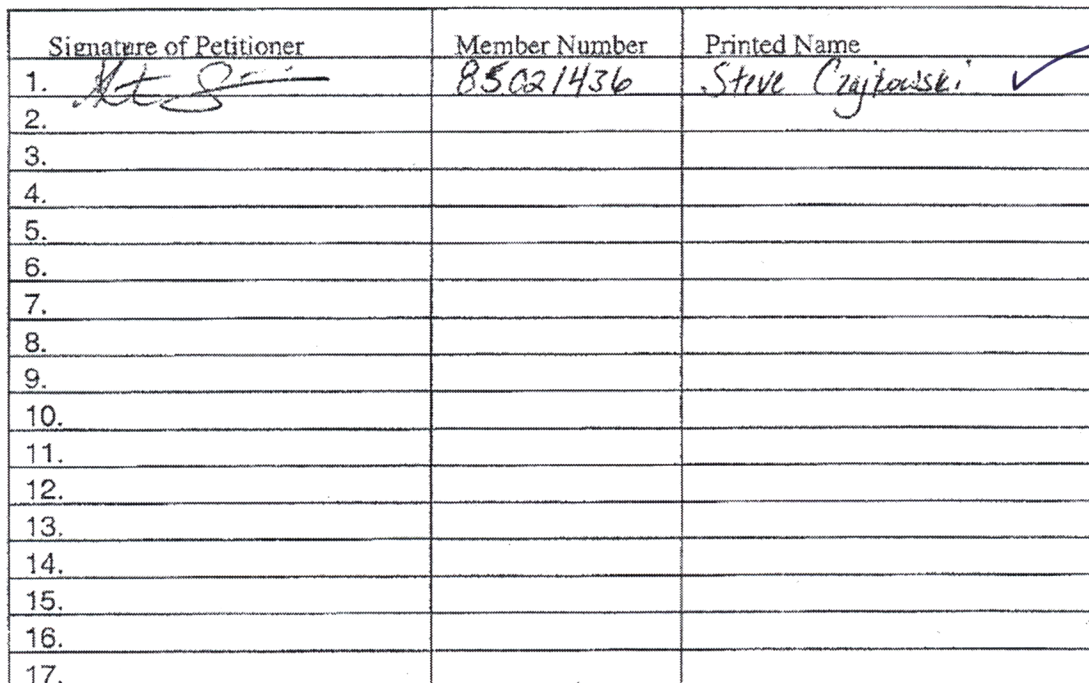 Signature of Petitioner Member Number Printed Name
1. 85021436 Steve Czajkowski
2.
3.
4.
5.
6.
7.
8.
9.
10.
11.
12.
13.
14.
15.
16.
17.